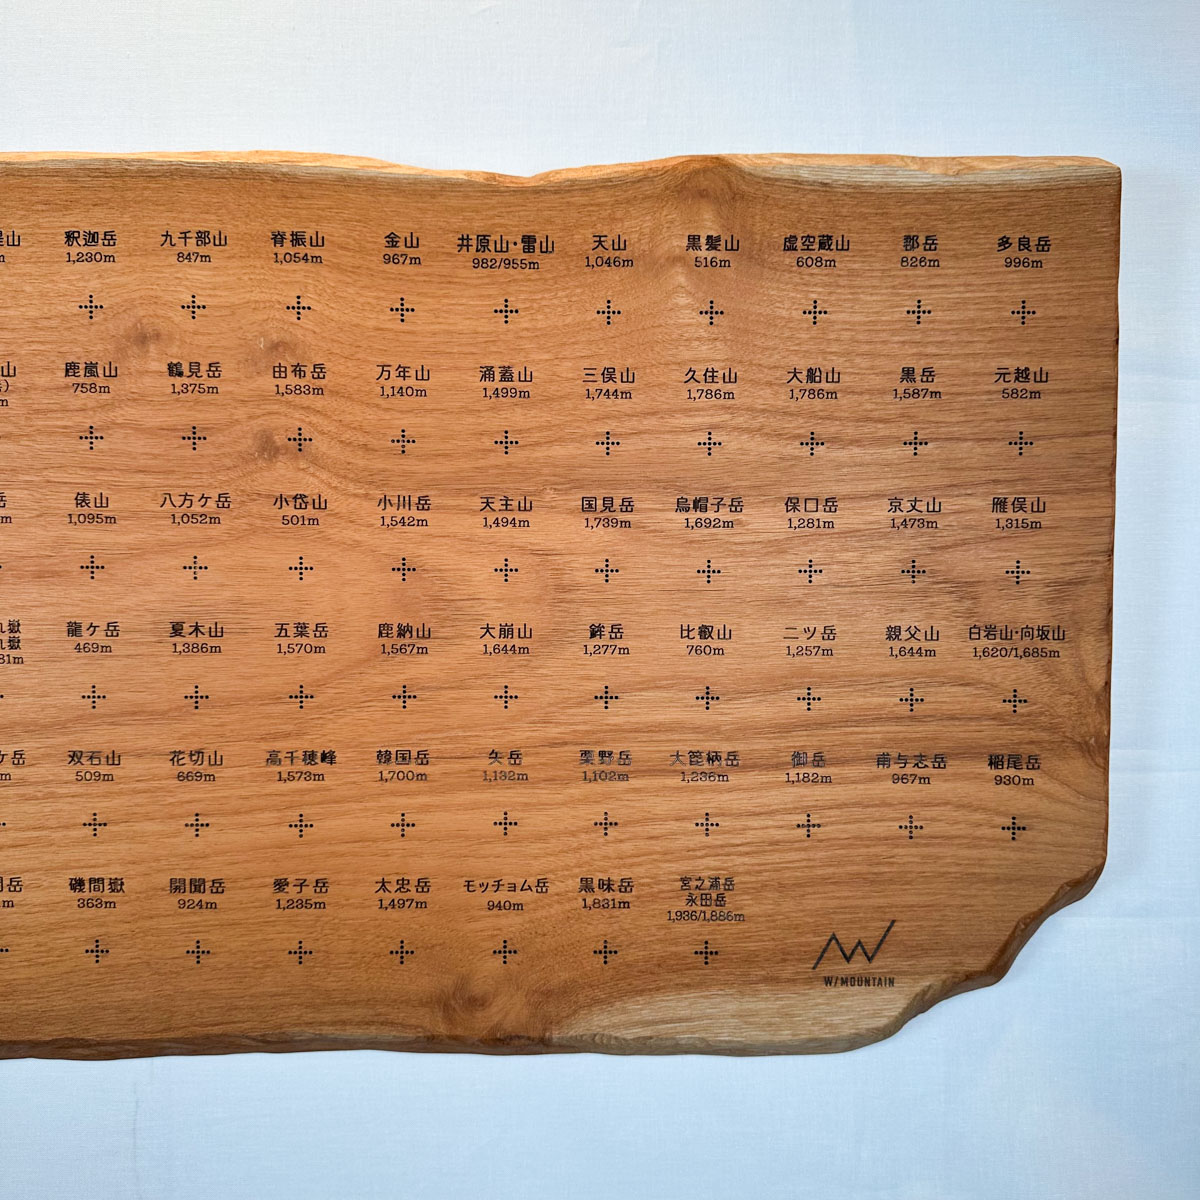 山 釈迦岳 九千部山 脊振山 金山 井原山・雷山 天山 黒髪山 虚空蔵山 郡岳 多良岳
m 1,230m 847m 1,054m 967m 982/955m 1,046m 516m 608m 826m 996m
山 鹿嵐山 鶴見岳 由布岳 万年山 涌蓋山 三俣山 久住山 大船山 黒岳 元越山
) 758m 1,375m 1,583m 1,140m 1,499m 1,744m 1,786m 1,786m 1,587m 582m
m
岳 俵山 八方ケ岳 小岱山 小川岳 天主山 国見岳 烏帽子岳 保口岳 京丈山 雁俣山
m 1,095m 1,052m 501m 1,542m 1,494m 1,739m 1,692m 1,281m 1,473m 1,315m
嶽 龍ケ岳 夏木山 五葉岳 鹿納山 大崩山 鉾岳 比叡山 二ツ岳 親父山 白岩山・向坂山
嶽 469m 1,386m 1,570m 1,567m 1,644m 1,277m 760m 1,257m 1,644m 1,620/1,685m
81m
ケ岳 双石山 花切山 高千穂峰 韓国岳 矢岳 栗野岳 大箆柄岳 御岳 甫与志岳 稲尾岳
m 509m 669m 1,573m 1,700m 1,132m 1,102m 1,236m 1,182m 967m 930m
岳 磯間嶽 開聞岳 愛子岳 太忠岳 モッチョム岳 黒味岳 宮之浦岳
m 363m 924m 1,235m 1,497m 940m 1,831m 永田岳
1,936/1,886m
W/MOUNTAIN